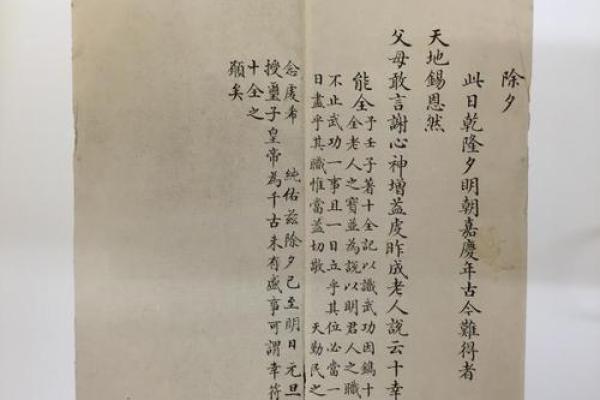 除夕
此日乾隆夕明朝嘉慶年古今難得者
天地錫恩然
父母敢言謝心神增益虔昨成老人說云十幸
能全
予壬子著十全記以識武功因鐫十
全老人之寶並為說以明君人之職
不止武功一事且一日立乎其位必當一
日盡乎其職惟當益切敬 天勤民之
念虔希 純佑茲除夕已至明日元旦
授璽子皇帝為千古未有盛事可謂幸符
十全之
願矣